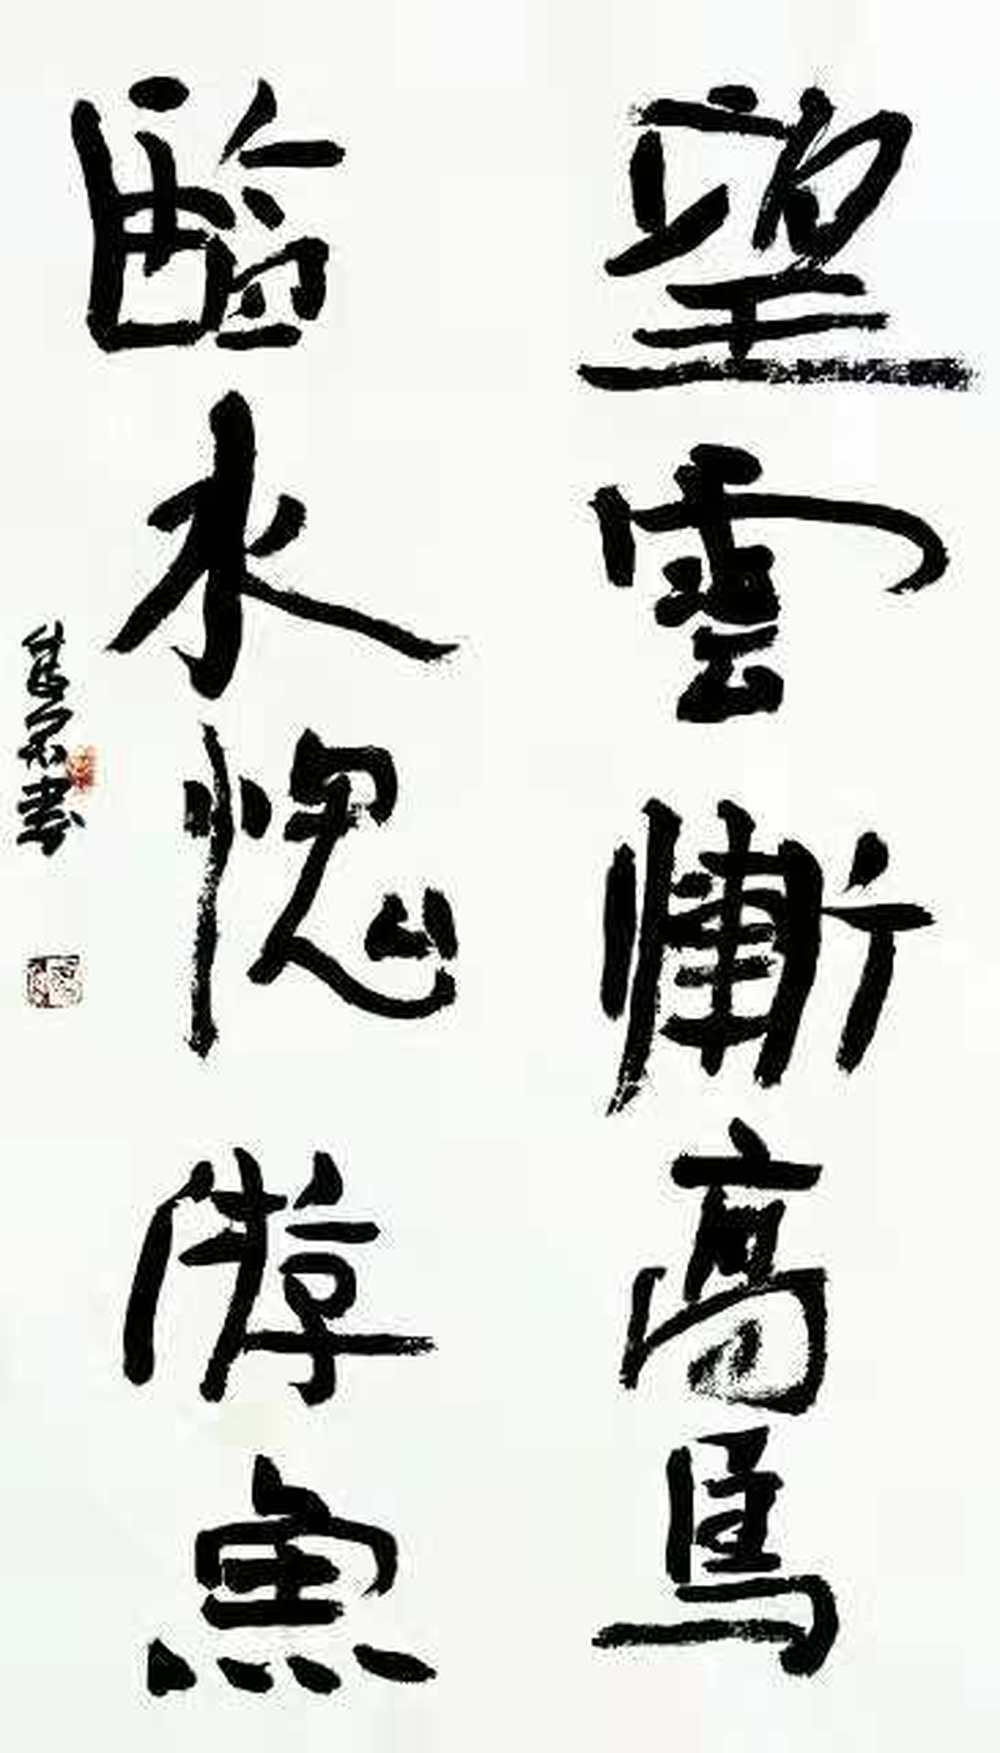 望雲慚高鳥
臨水愧游魚
書